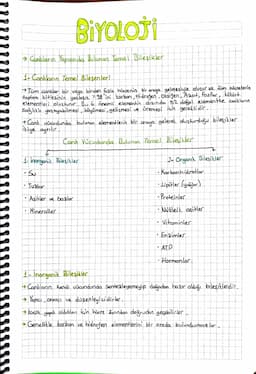 BİYOLOJİ
→ Canlıların Yapısında Bulunan Temel Bileşikler
1- Canlıların Temel Bileşenleri
→ Tüm canlılar bir veya birden fazla hücrenin bir araya gelmesiyle oluşur.
elementleri oluşturur. Bu 6 önemli elementin
sağlıklı büyümesi, gelişmesi ve üremesi için gereklidir.
→ Canlı vücudunda bulunan elementlerin bir araya gelerek oluşturduğu bileşikler
ikiye ayrılır.
Canlı Vücudunda Bulunan Temel Bileşikler
1- İnorganik Bileşikler
2- Organik Bileşikler
• Su
• Karbonhidratlar
• Tuzlar
• Lipitler (yağlar)
• Asitler ve bazlar
• Proteinler
• Mineraller
• Nükleik asitler
• Vitaminler
• Enzimler
• ATP
• Hormonlar
1- İnorganik Bileşikler
→ Canlıların kendi vücudunda sentezleyemeyip dışarıdan hazır aldığı bileşiklerdir.
→ Yapıcı, onarıcı ve düzenleyicidirler.
→ küçük yapılı oldukları için hücre zarından doğrudan geçebilirler.
→ Genellikle karbon ve hidrojen elementlerini bir arada bulundurmazlar.